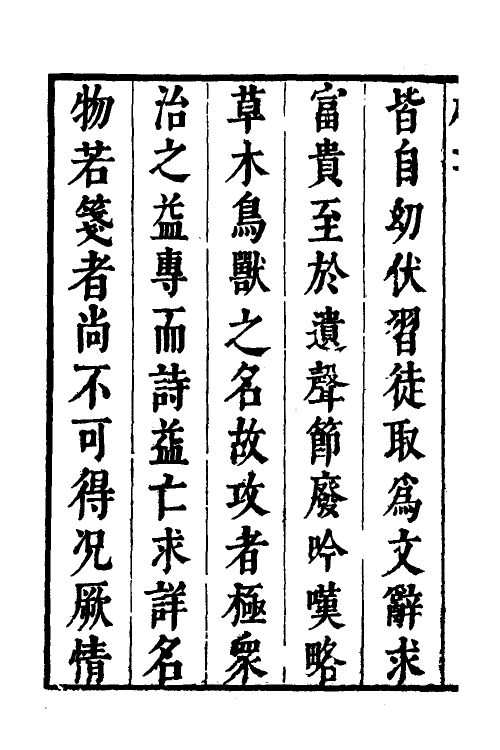 皆自㓜伏習徒取爲文辭求
富貴至於遺聲節廢吟嘆略
草木鳥獸之名故攻者極衆
治之益專而詩益亡求詳名
物若箋者尚不可得况厥情